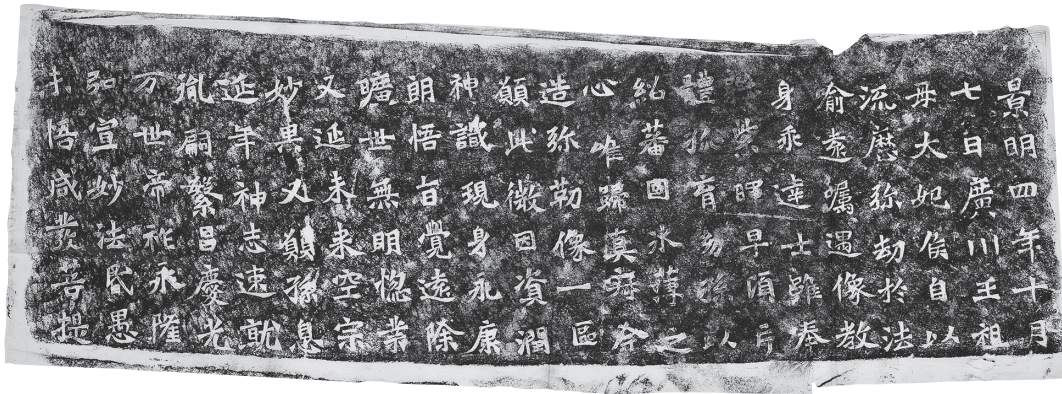 景明四年十月
七日廣川王祖
母太妃侯自以
流歷弥劫於法
喻遠囑遇像教
身乘達士雖奉
紫暉早頃片
體孤育幼孫以
紹蕃國冰薄之
心唯歸真寂今
造弥勒像一區
願此微因資潤
神識現身永康
朗悟旨覺遠除
曠世無明惚業
又延未來空宗
妙果又願孫息
延年神志速就
胤嗣繁昌慶光
万世帝祚永隆
弘宣妙法昏愚
悟咸發菩提